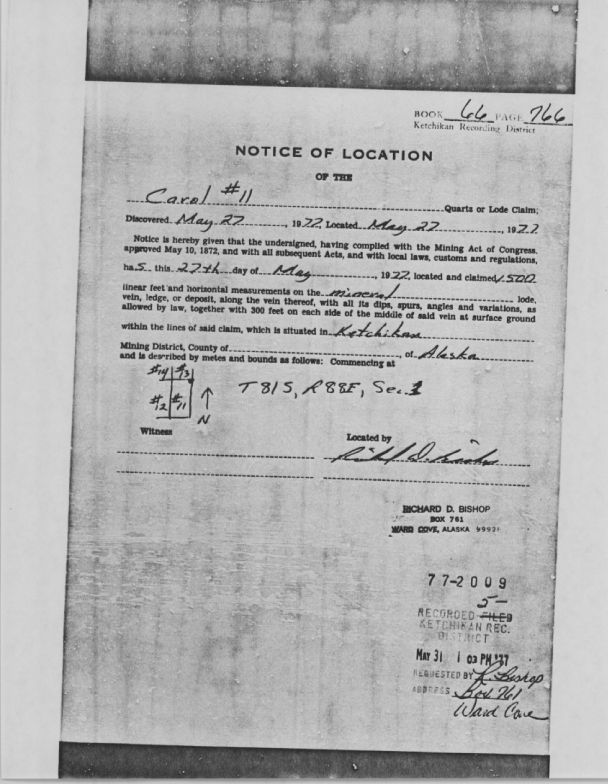 BOOK 66 PAGE 766
Ketchikan Recording District
NOTICE OF LOCATION
OF THE
Carol #11 Quartz or Lode Claim;
Discovered May 27, 1977, Located May 27, 1977
Notice is hereby given that the undersigned, having complied with the Mining Act of Congress,
approved May 10, 1872, and with all subsequent Acts, and with local laws, customs and regulations,
has this 27th day of May, 1977, located and claimed 1500
linear feet and horizontal measurements on the mineral lode,
vein, ledge, or deposit, along the vein thereof, with all its dips, spurs, angles and variations, as
allowed by law, together with 300 feet on each side of the middle of said vein at surface ground
within the lines of said claim, which is situated in Ketchikan
Mining District, County of , of Alaska
and is described by metes and bounds as follows: Commencing at
#14 #13
#12 #11 N T81S, R88E, Sec. 1
Witness Located by
RICHARD D. BISHOP
BOX 761
WARD COVE, ALASKA 99928
77-2009
5-
RECORDED FILED
KETCHIKAN REC.
DISTRICT
MAY 31 1 03 PM '77
REQUESTED BY R. Bishop
ADDRESS Box 761
Ward Cove